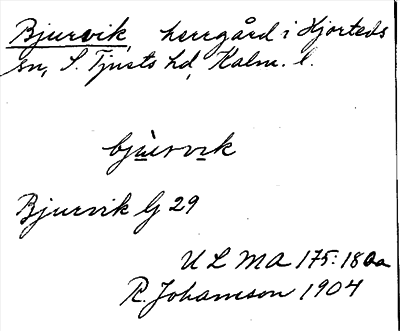 Bjurvik, herrgård i Hjorteds
sn, S. Tjusts hd, Kalm. l.
bjùrvik
Bjurvik G 29
ULMA 175:18 aa
R. Johansson 1904